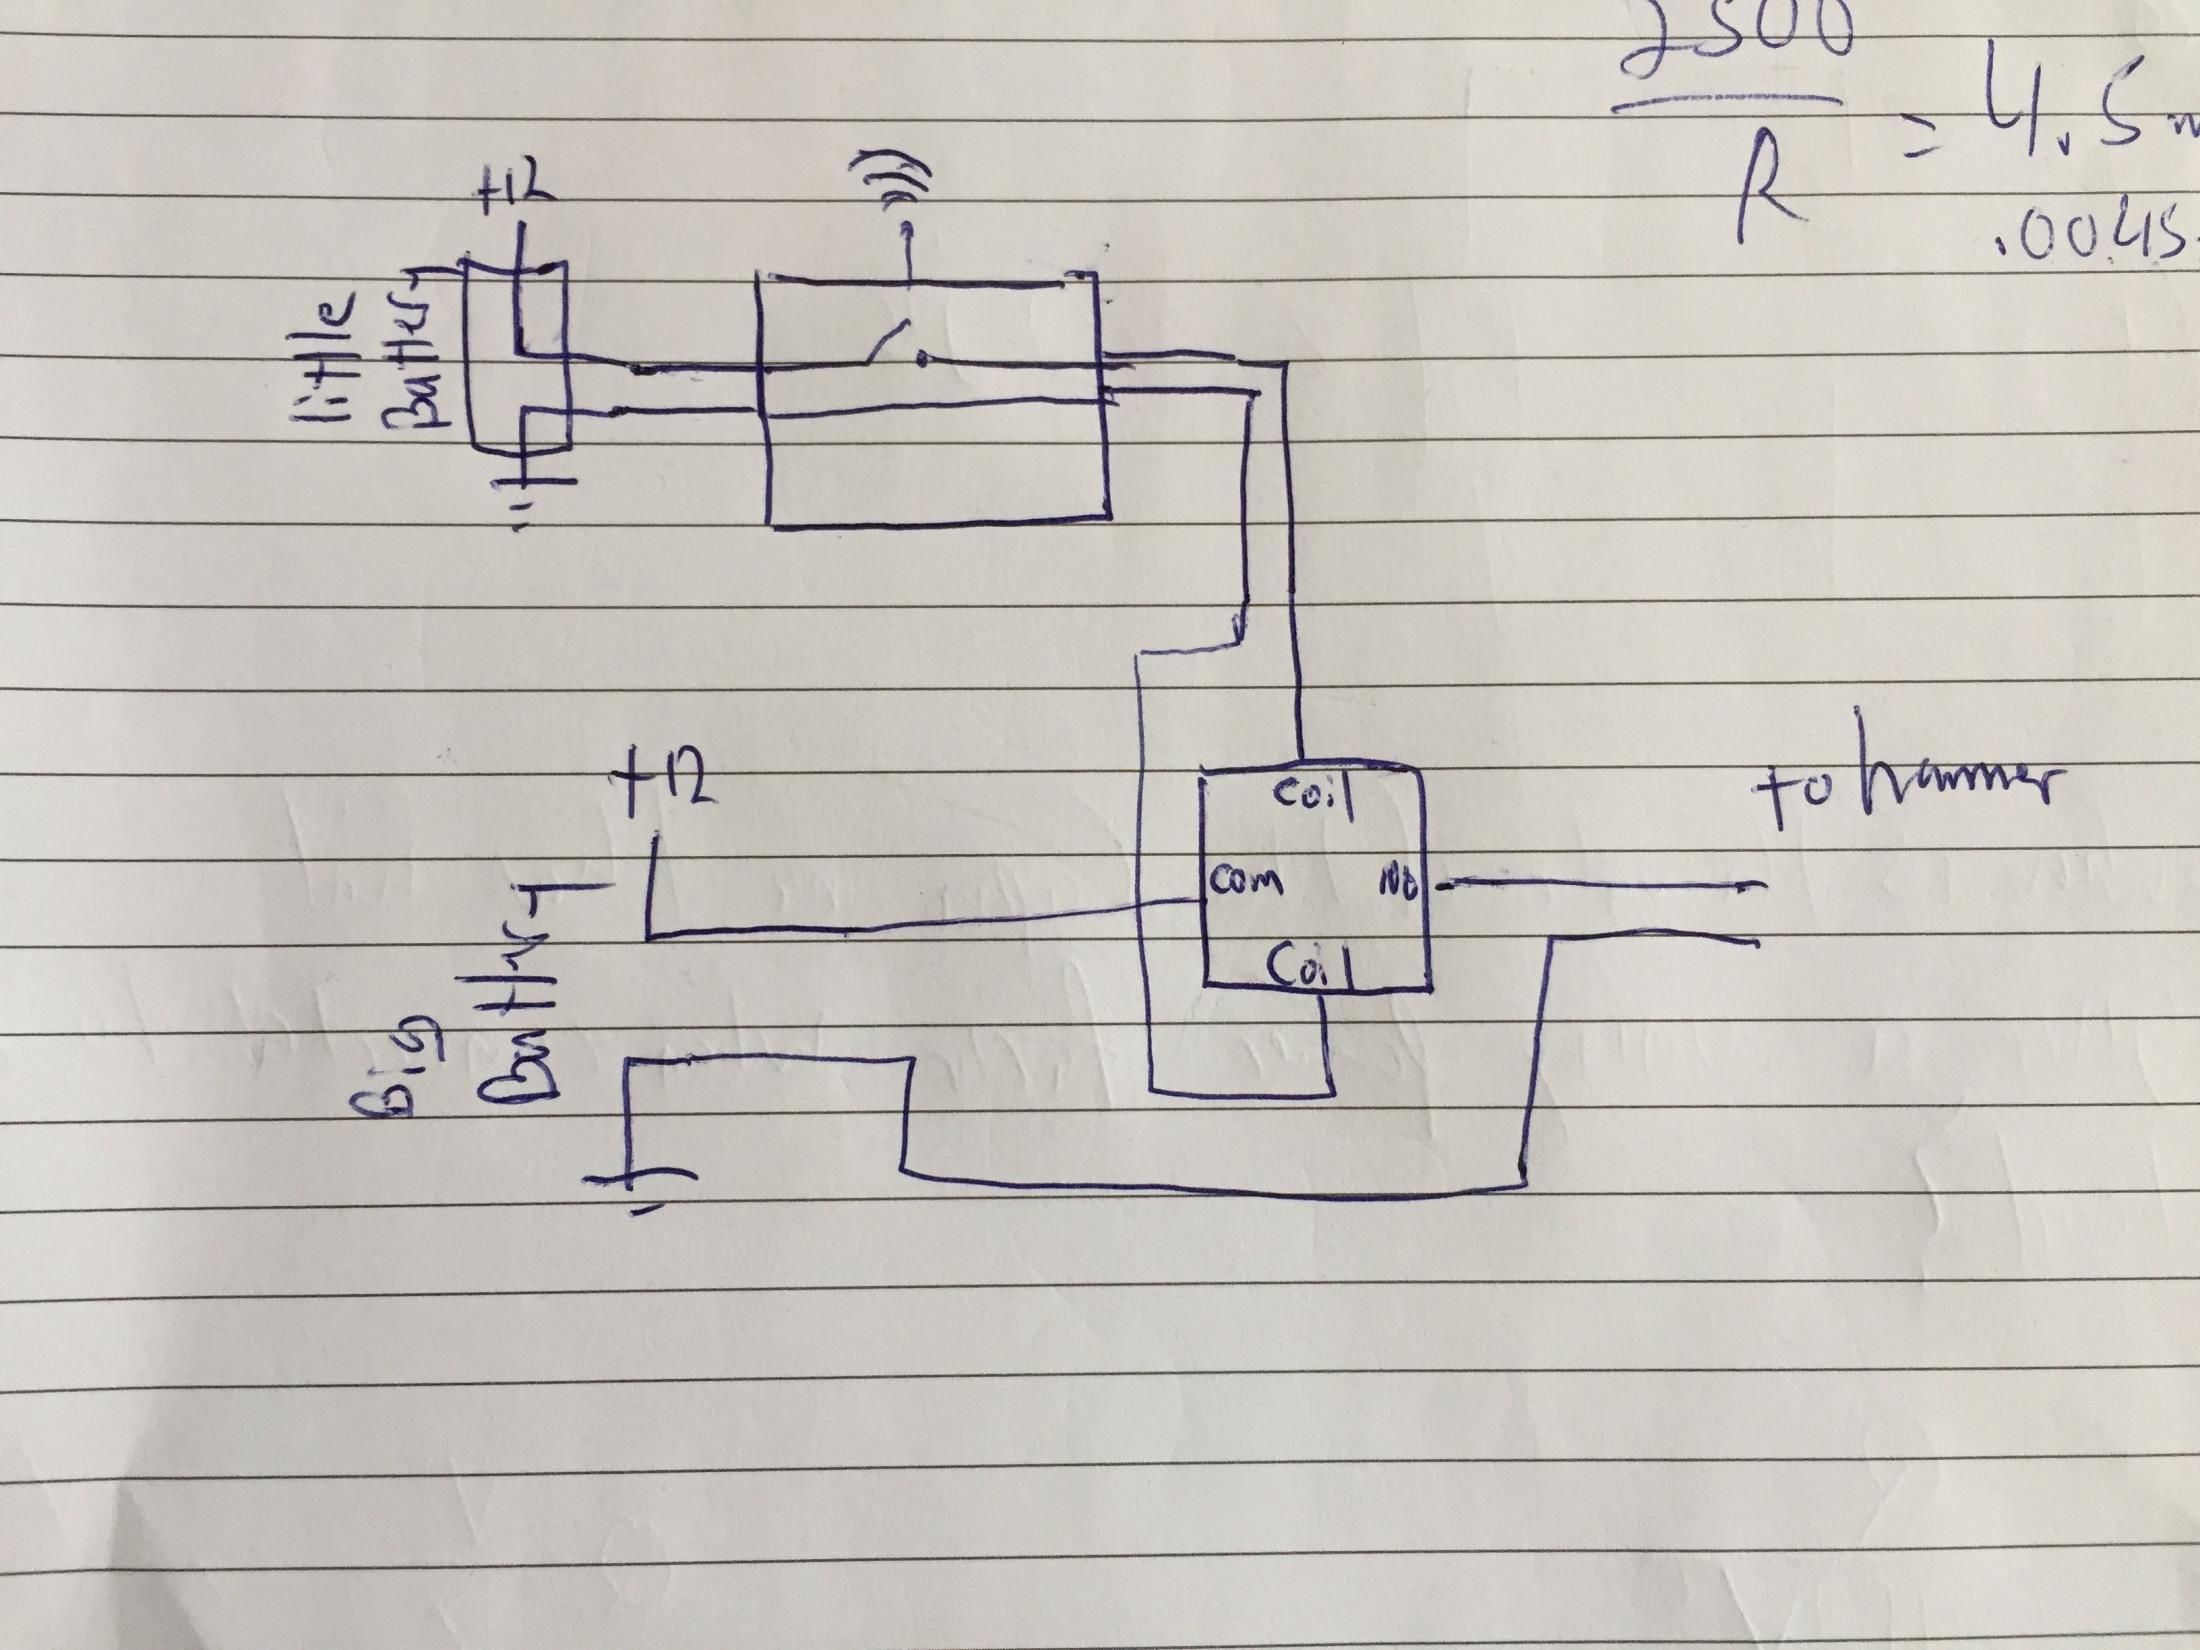 2500
R
= 4.5 m
.0045
+12
little
Battery
+12
Big
Battery
Coil
Com
No
Coil
to hammer